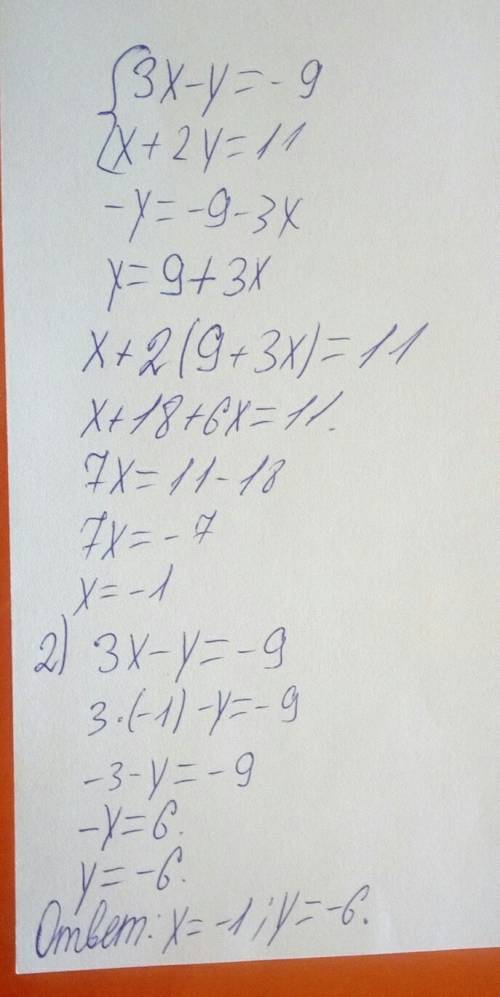 {3x-y=-9
{x+2y=11
-y=-9-3x
y=9+3x
x+2(9+3x)=11
x+18+6x=11.
7x=11-18
7x=-7
x=-1
2) 3x-y=-9
3·(-1)-y=-9
-3-y=-9
-y=6.
y=-6.
Ответ: x=-1; y=-6.